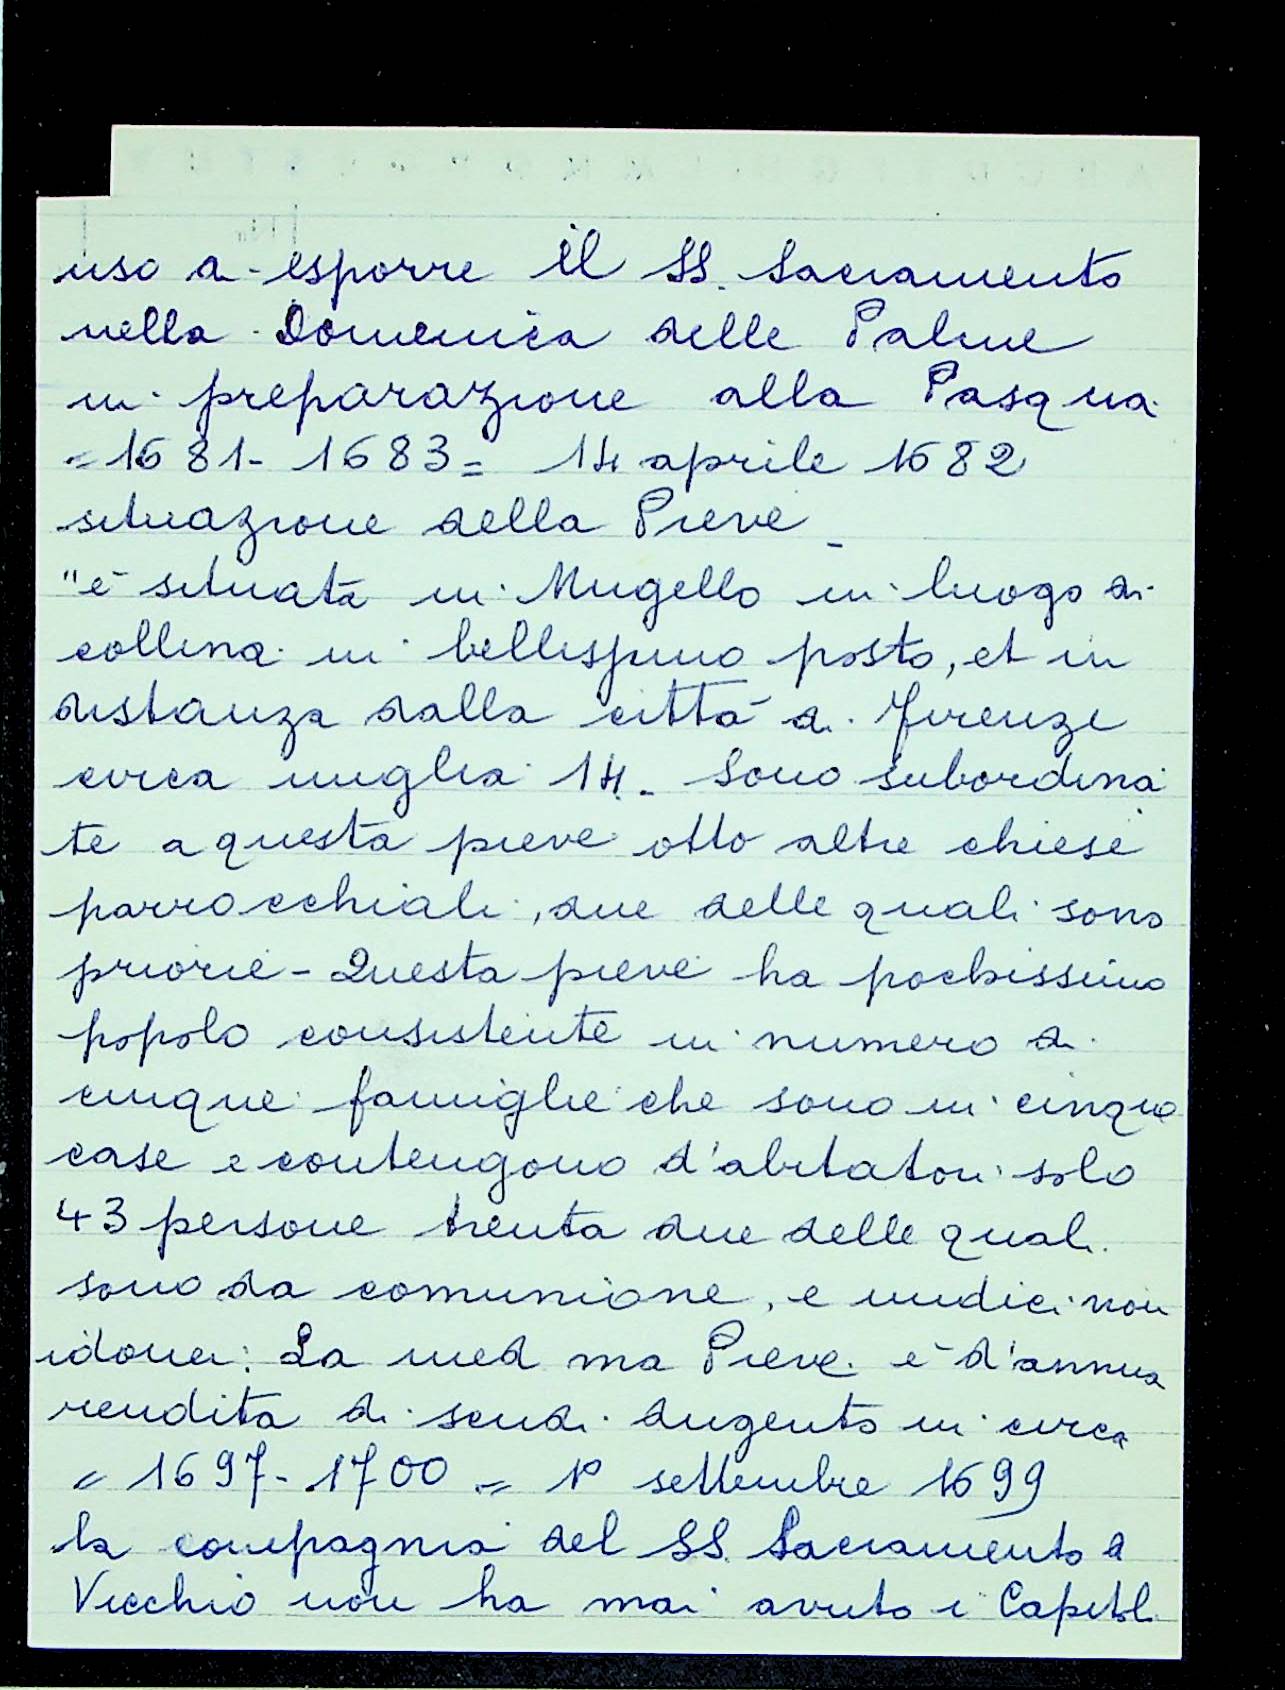 uso a esporre il SS. Sacramento
nella Domenica delle Palme
in preparazione alla Pasqua
= 1681-1683 = 14 aprile 1682
situazione della Pieve -
"è situata in Mugello in luogo di
collina in bellissimo posto, et in
distanza dalla città di Firenze
circa miglia 14. Sono subordina
te a questa pieve otto altre chiese
parrocchiali, due delle quali sono
priorie - Questa pieve ha pochissimo
popolo consistente in numero di
cinque famiglie che sono in cinque
case e contengono d'abitatori solo
43 persone trenta due delle quali
sono da comunione, e undici non
idonei: La med ma Pieve è d'annua
rendita di scudi dugento in circa
= 1697-1700 = 1° settembre 1699
la compagnia del SS. Sacramento a
Vicchio non ha mai avuto i Capitoli